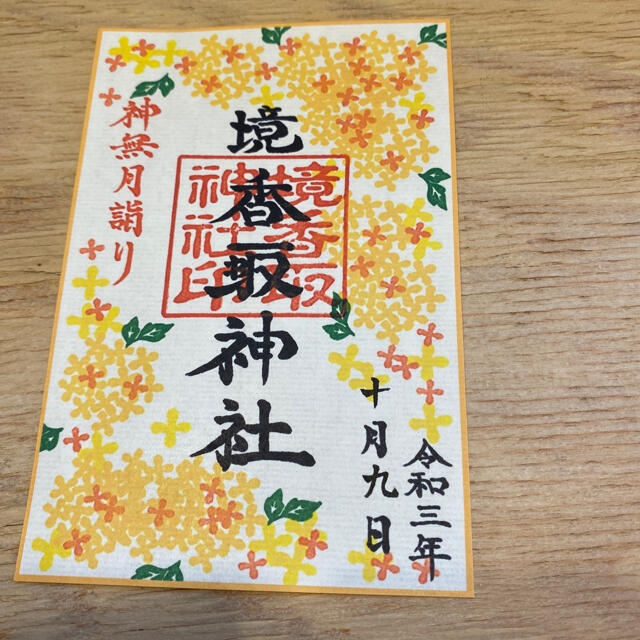 令和三年
十月九日
境香取神社
境香取
神社印
神無月詣り